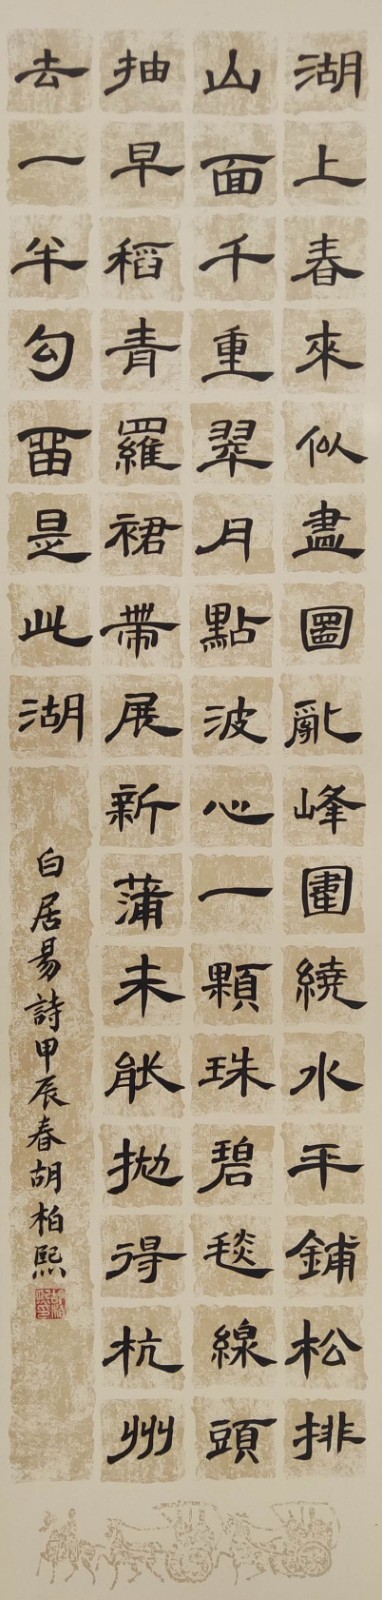 湖上春來似畫圖亂峰圍繞水平鋪松排
山面千重翠月點波心一顆珠碧毯線頭
抽早稻青羅裙帶展新蒲未能拋得杭州
去一半勾留是此湖
白居易詩甲辰春胡柏熙